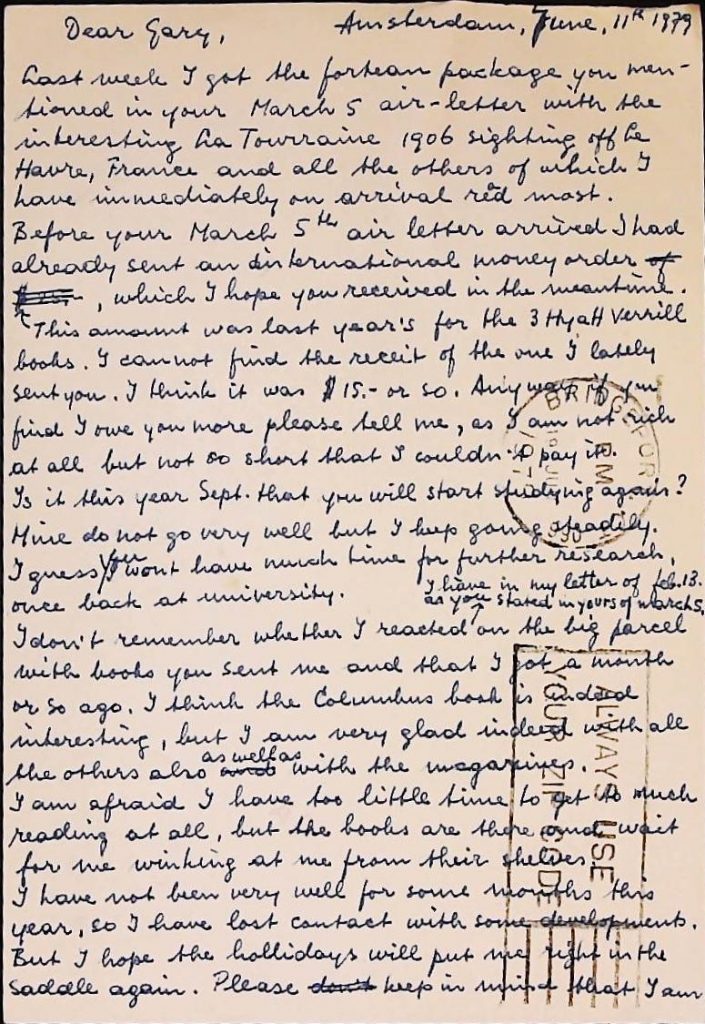 Dear Gary,
Amsterdam, June, 11th 1979
Last week I got the fortean package you men-
tioned in your March 5 air-letter with the
interesting La Tourraine 1906 sighting off Le
Havre, France and all the others of which I
have immediately on arrival rêd most.
Before your March 5th air letter arrived I had
already sent an international money order of
, which I hope you received in the meantime.
This amount was last year's for the 3 Hyatt Verrill
books. I cannot find the receit of the one I lately
sent you. I think it was $15.- or so. Anyway if you
find I owe you more please tell me, as I am not rich
at all but not so short that I couldn't pay it.
Is it this year Sept. that you will start studying again?
Mine do not go very well but I keep going steadily.
I guess you wont have much time for further research,
once back at university.
I have in my letter of feb. 13.
as you stated in yours of march 5,
I don't remember whether I reacted on the big parcel
with books you sent me and that I got a month
or so ago. I think the Columbus book is indeed
interesting, but I am very glad indeed with all
the others also as well as with the magazines.
I am afraid I have too little time to get to much
reading at all, but the books are there and wait
for me winking at me from their shelves.
I have not been very well for some months this
year, so I have lost contact with some developments.
But I hope the hollidays will put me right in the
saddle again. Please don't keep in mind that I am
BRIDGEPOR
PM
ALWAYS USE
YOUR ZIP CODE